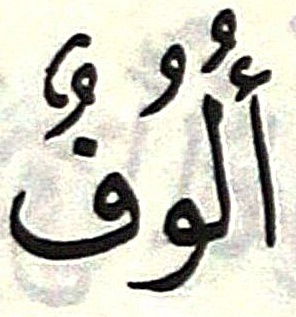 أُلُوفٌ